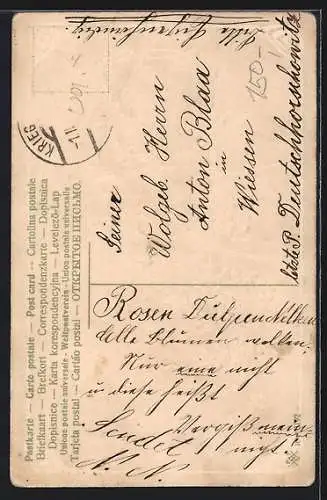 Postkarte — Carte postale — Post card — Cartolina postale
Briefkaart — Brefkort — Correspondenzkarte — Dopisnica
Dopisnice — Karta korespondencyjna — Levelező-Lap
Unione postale universale — Weltpostverein — Union postale universelle
Tarjeta postal — Cartão postal — ОТКРЫТОЕ ПИСЬМО.
KRIEG
150-
Seiner
Wolgeb. Herrn
Anton Blaa
in
Wiessen
letzte P. Deutschhorschowitz
Rosen Tulpen Nelken
Alle Blumen welken
Nur eine nicht
u diese heißt
Vergiß mein
nigt.
Sendet
N. N.